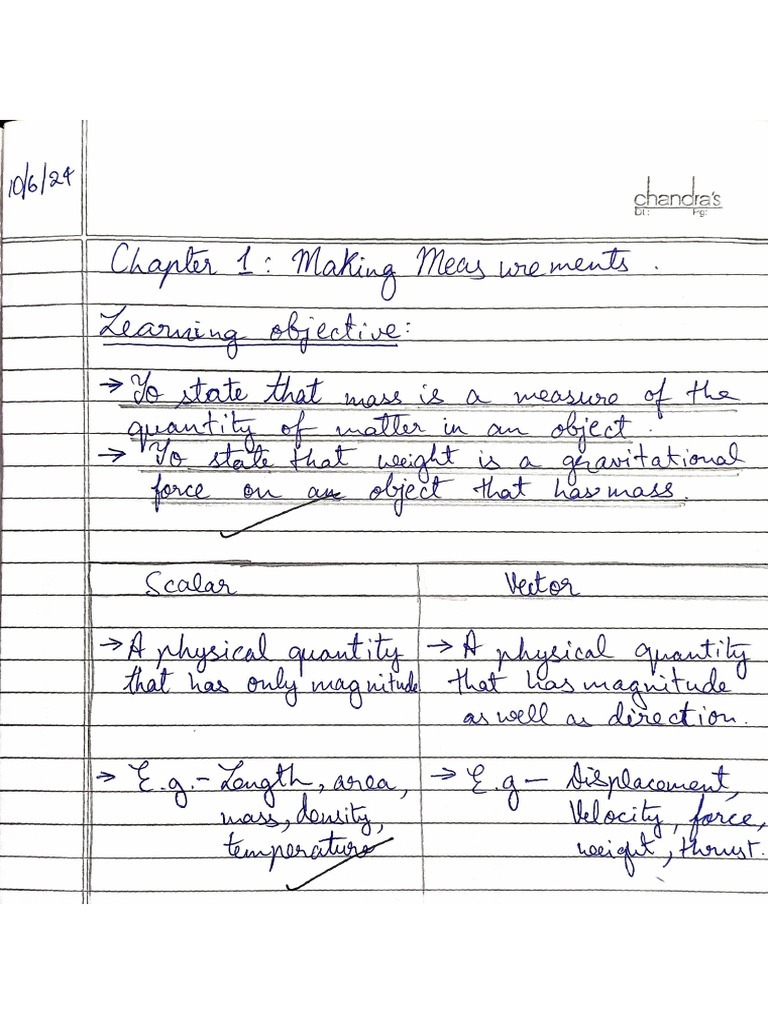 10/6/24
chandra's
Dt: Pg:
Chapter 1: Making Measurements.
Learning objective:
→ To state that mass is a measure of the
quantity of matter in an object.
→ To state that weight is a gravitational
force on an object that has mass.
Scalar
→ A physical quantity
that has only magnitude
→ E.g. - Length, area,
mass, density,
temperature
Vector
→ A physical quantity
that has magnitude
as well as direction.
→ E.g - Displacement,
Velocity, force,
weight, thrust.